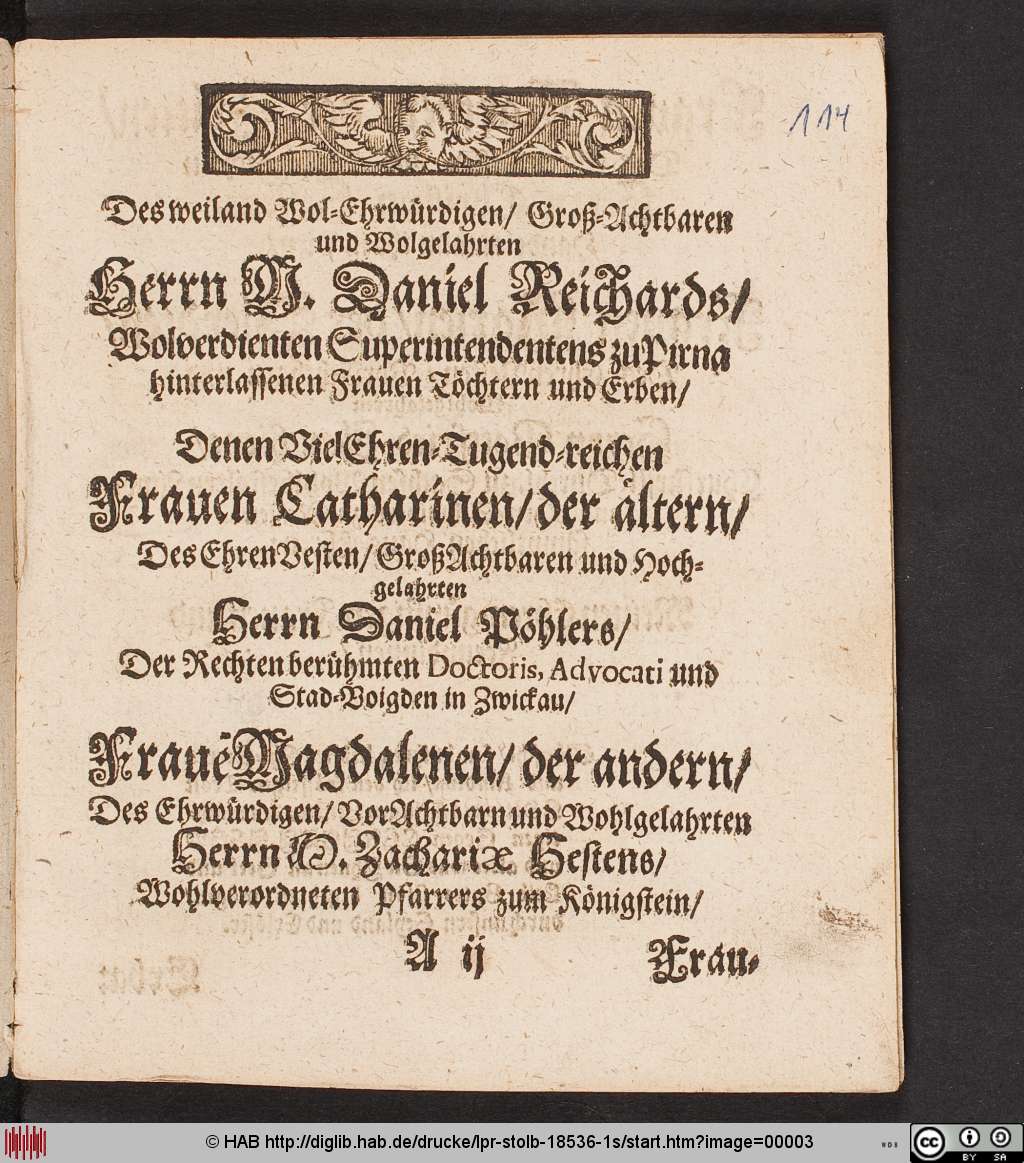 114
Des weiland Wol-Ehrwürdigen/ Groß-Achtbaren
und Wolgelahrten
Herrn M. Daniel Reichards/
Wolverdienten Superintendentens zu Pirna
hinterlassenen Frauen Töchtern und Erben/
Denen VielEhren-Tugend-reichen
Frauen Catharinen/ der ältern/
Des EhrenVesten/ GroßAchtbaren und Hoch-
gelahrten
Herrn Daniel Pöhlers/
Der Rechten berühmten Doctoris, Advocati und
Stad-Voigden in Zwickau/
Frauē Magdalenen/ der andern/
Des Ehrwürdigen/ VorAchtbarn und Wohlgelahrten
Herrn M. Zachariæ Hestens/
Wohlverordneten Pfarrers zum Königstein/
A ij Frau-
© HAB http://diglib.hab.de/drucke/lpr-stolb-18536-1s/start.htm?image=00003
WDB
cc BY SA